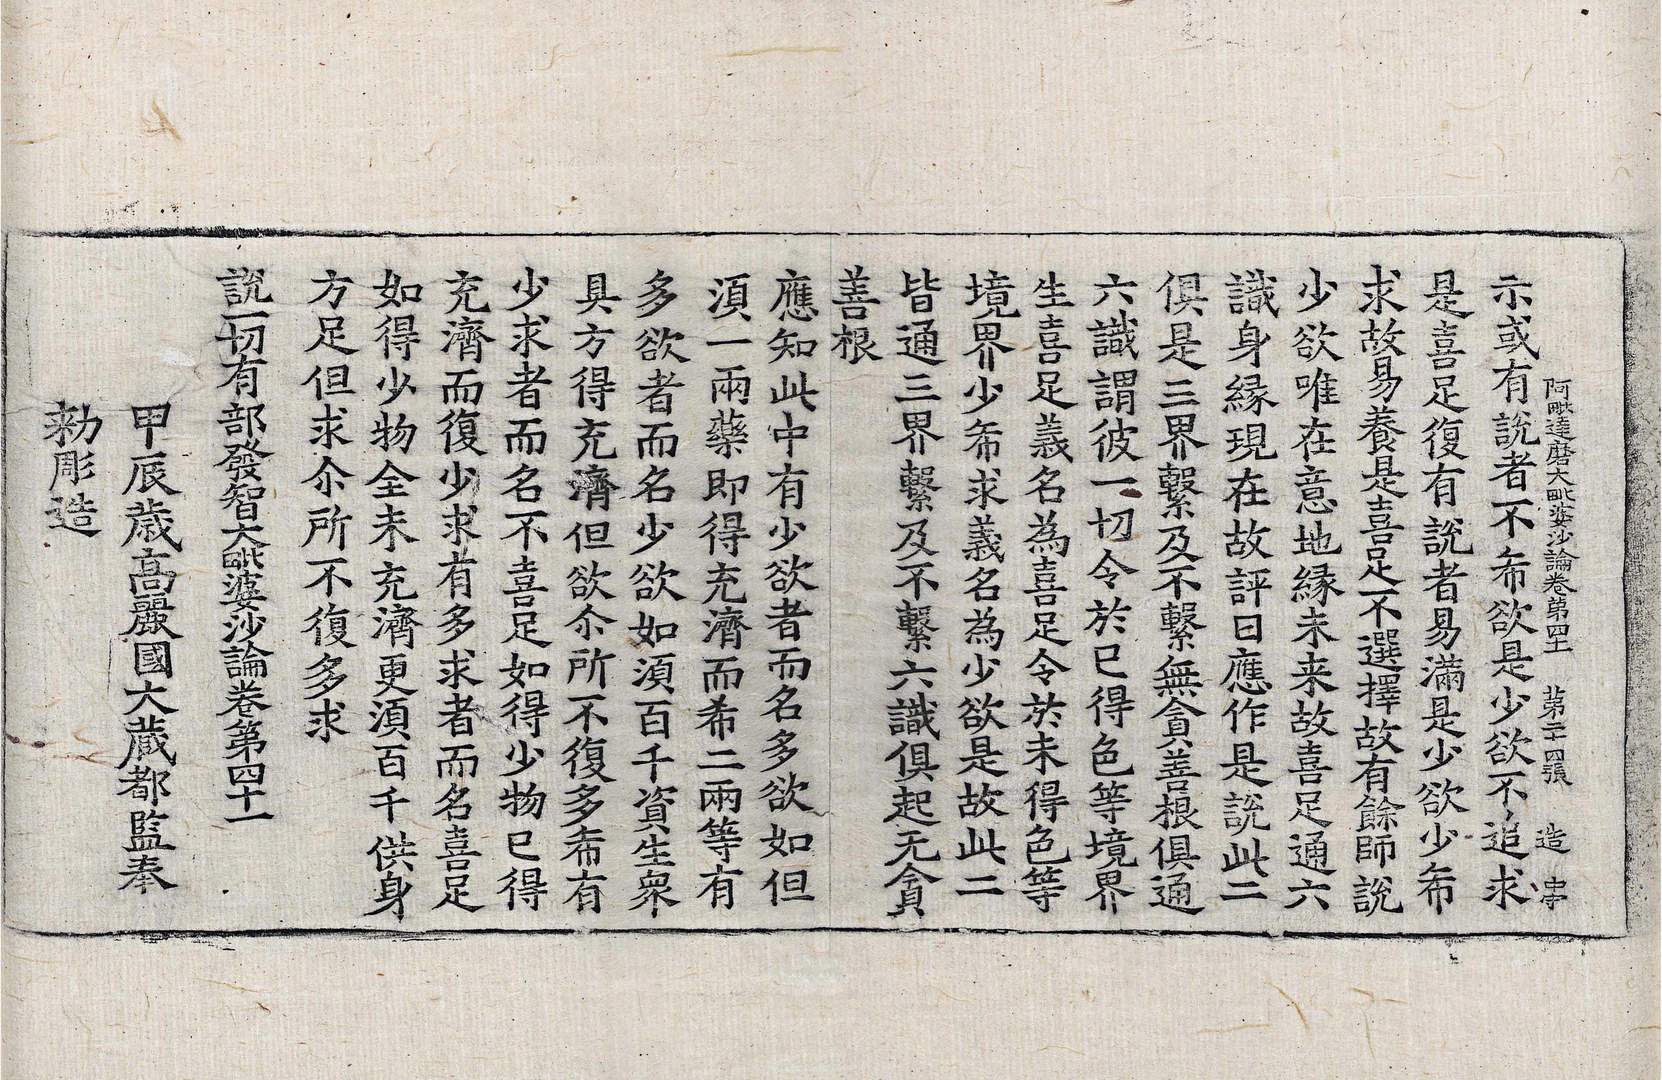 阿毗達磨大毗婆沙論卷第四十一 第二十四張 造 忠
示或有說者不希欲是少欲不追求
是喜足復有說者易滿是少欲少希
求故易養是喜足不選擇故有餘師說
少欲唯在意地緣未来故喜足通六
識身緣現在故評曰應作是說此二
俱是三界繫及不繫無貪善根俱通
六識謂彼一切令於已得色等境界
生喜足義名為喜足令於未得色等
境界少希求義名為少欲是故此二
皆通三界繫及不繫六識俱起无貪
善根
應知此中有少欲者而名多欲如但
湏一兩藥即得充濟而希二兩等有
多欲者而名少欲如湏百千資生衆
具方得充濟但欲尒所不復多希有
少求者而名不喜足如得少物已得
充濟而復少求有多求者而名喜足
如得少物全未充濟更湏百千供身
方足但求尒所不復多求
說一切有部發智大毗婆沙論卷第四十一
甲辰歲高麗國大藏都監奉
勅彫造